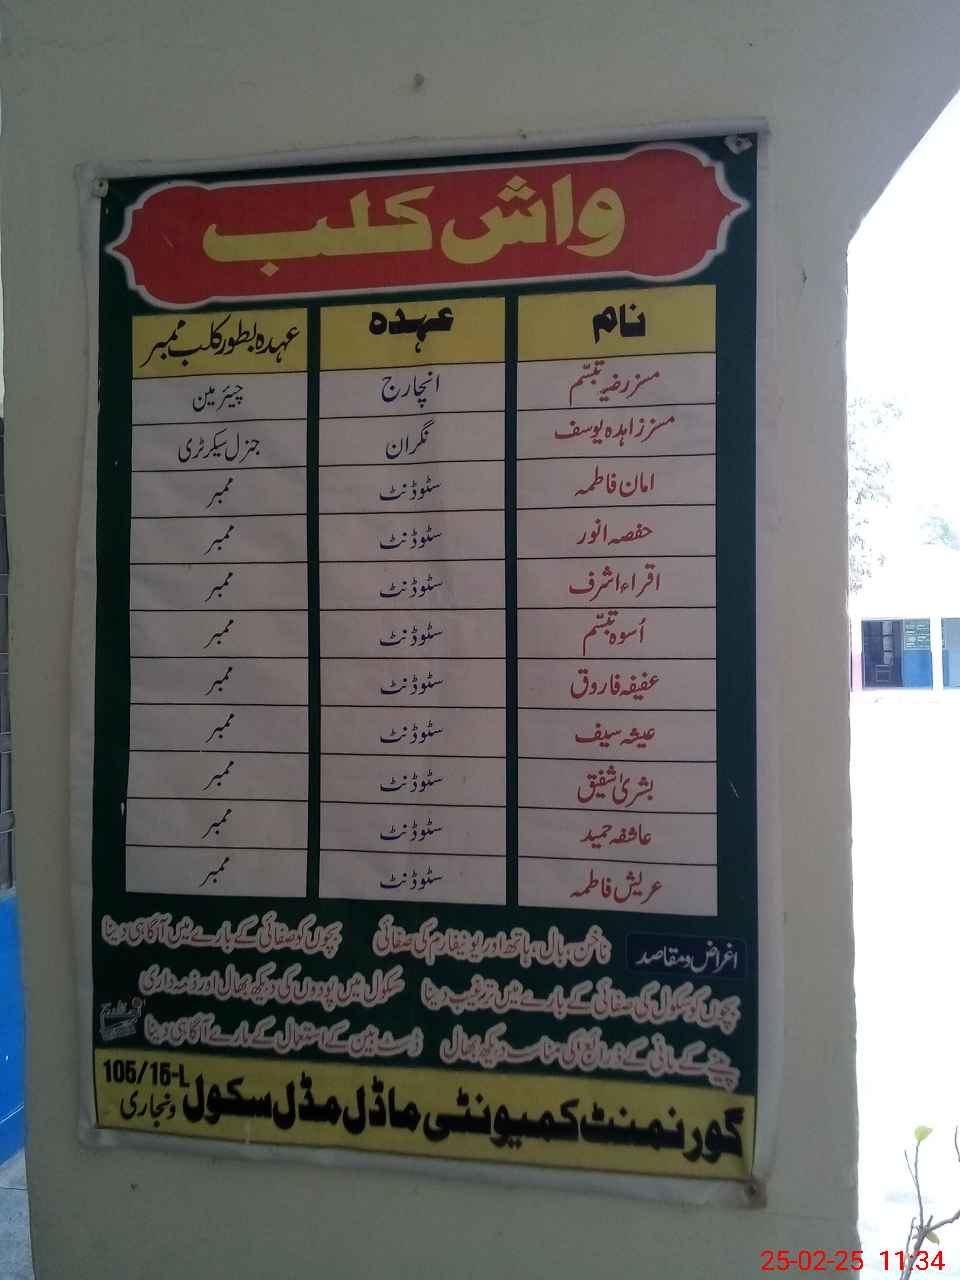 واش کلب
نام عہدہ عہدہ بطور کلب ممبر
مسز رضیہ تبسّم انچارج چیئرمین
مسز زاہدہ یوسف نگران جنرل سیکرٹری
امان فاطمہ سٹوڈنٹ ممبر
حفصہ انور سٹوڈنٹ ممبر
اقراء اشرف سٹوڈنٹ ممبر
اُسوہ تبسّم سٹوڈنٹ ممبر
عفیفہ فاروق سٹوڈنٹ ممبر
عیشہ سیف سٹوڈنٹ ممبر
بشریٰ شفیق سٹوڈنٹ ممبر
عاشفہ حمید سٹوڈنٹ ممبر
عریش فاطمہ سٹوڈنٹ ممبر
اغراض و مقاصد ناخن، بال، ہاتھ اور یونیفارم کی صفائی بچوں کو صفائی کے بارے میں آگاہی دینا
بچوں کو سکول کی صفائی کے بارے میں ترغیب دینا سکول میں پودوں کی دیکھ بھال اور ذمہ داری
پینے کے پانی کے ذرائع کی مناسب دیکھ بھال ڈسٹ بین کے استعمال کے بارے آگاہی دینا
گورنمنٹ کمیونٹی ماڈل مڈل سکول 105/15-L ونجاری
25-02-25 11:34